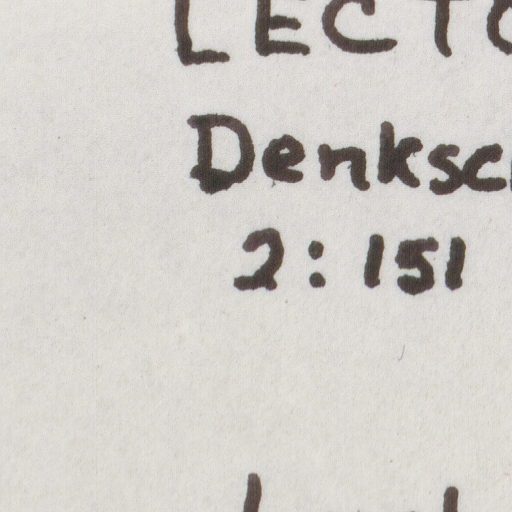 LECTO
Denksc
2:151